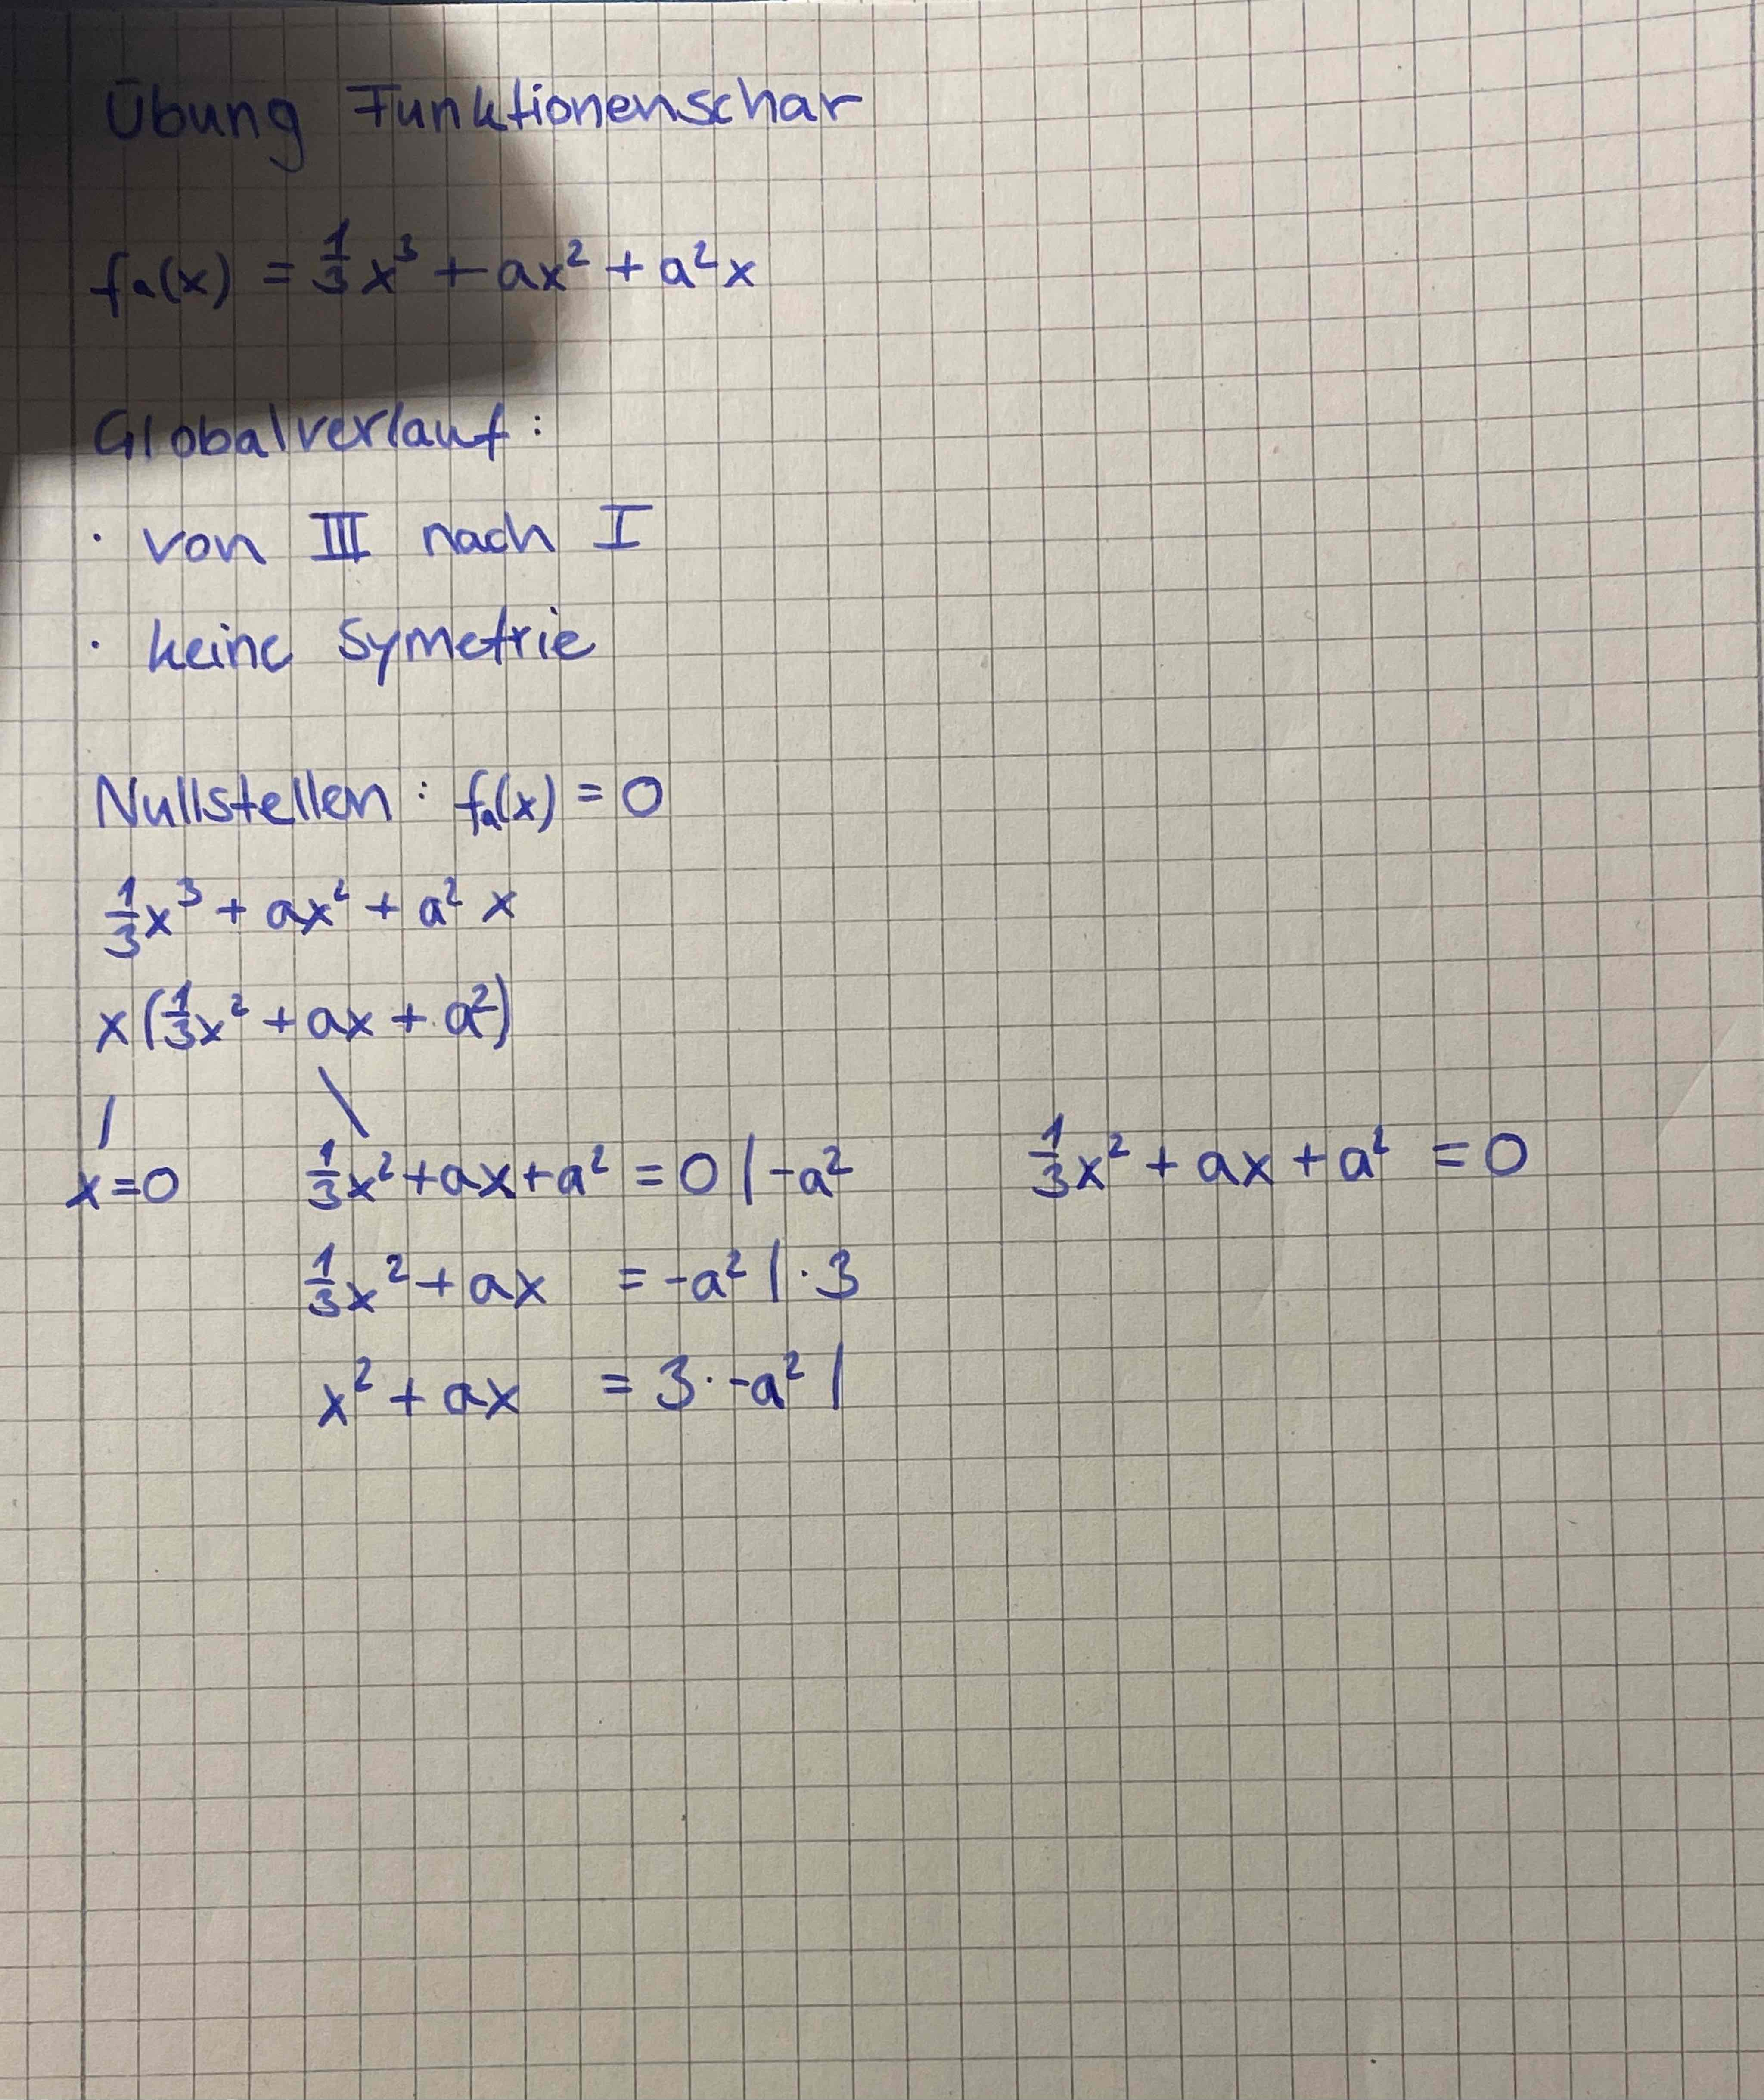 Übung Funktionenschar
fa(x) = 1/3 x³ + ax² + a²x
Globalverlauf:
· von III nach I
· keine Symetrie
Nullstellen: fa(x) = 0
1/3 x³ + ax² + a² x
x(1/3 x² + ax + a²)
x=0 1/3 x² + ax + a² = 0 | -a² 1/3 x² + ax + a² = 0
1/3 x² + ax = -a² | · 3
x² + ax = 3 · -a² |